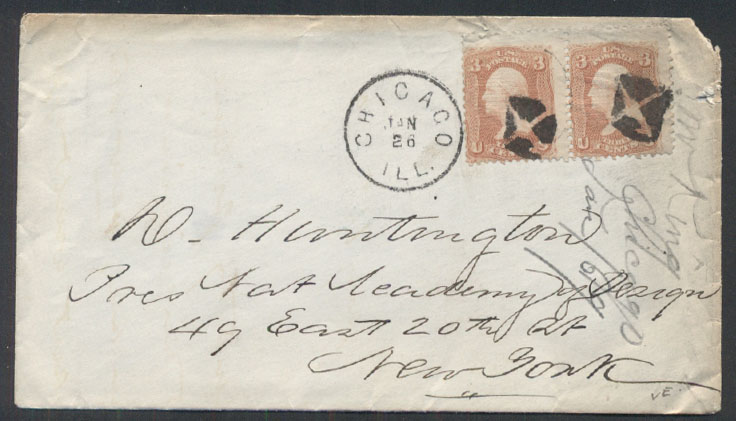 CHICAGO
JAN
26
ILL.
U.S.
POSTAGE
3 3
U CENTS
U.S.
POSTAGE
3 3
U CENTS
D. Huntington
Pres Nat Academy of Design
49 East 20th St
New York
Chicago
Jan
VE